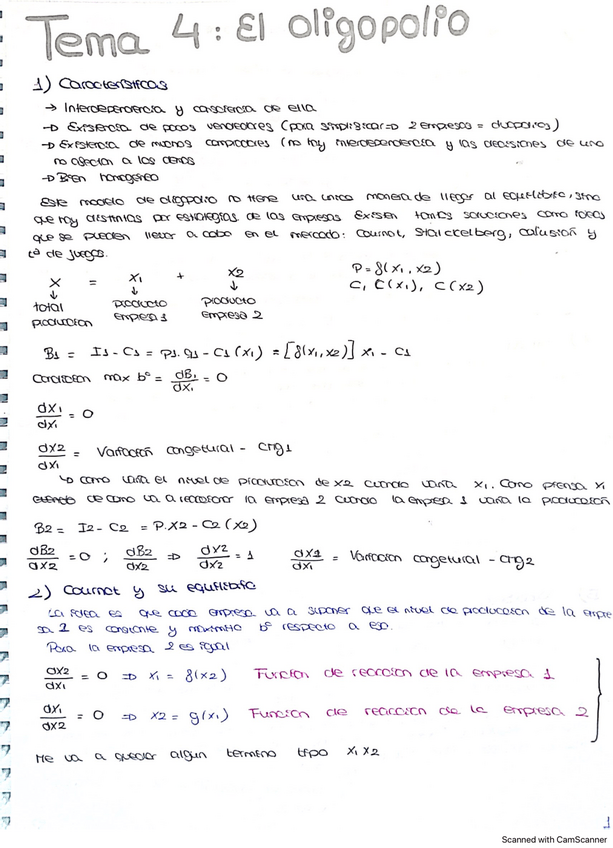 Tema 4: El oligopolio
1) Características
→ Interdependencia y consciencia de ella
→ Existencia de pocos vendedores (para simplificar ⇒ 2 empresas = duopolios)
→ Existencia de muchos compradores (no hay interdependencia y las decisiones de uno
no afectan a los demás
→ Bien homogéneo
Este modelo de oligopolio no tiene una unica manera de llegar al equilibrio, sino
que hay distintas por estrategias de las empresas. Existen tantas soluciones como ideas
que se pueden llevar a cabo en el mercado: Cournot, Stackelberg, colusión y
la de juegos.
X = X1 + X2
↓ ↓ ↓
total producto producto
producción empresa 1 empresa 2
P = f(x1, x2)
C, C(x1), C(x2)
B1 = I1 - C1 = P1·q1 - C1(x1) = [f(x1,x2)] x1 - C1
Condición max bº = dB1/dx1 = 0
dx1/dx1 = 0
dx2/dx1 = Variación congetural - cng1
↳ como varía el nivel de producción de x2 cuando varía x1. Como piensa x1
de como va a reaccionar la empresa 2 cuando la empresa 1 varía la producción
B2 = I2 - C2 = P·X2 - C2(X2)
dB2/dx2 = 0 ; dB2/dx2 ⇒ dx2/dx2 = 1 dx1/dx1 = Variación congetural - cng2
2) Cournot y su equilibrio
La idea es que cada empresa va a suponer que el nivel de producción de la empre
sa 2 es constante y maximiza bº respecto a eso.
Para la empresa 2 es igual
dx2/dx1 = 0 ⇒ x1 = f(x2) Función de reacción de la empresa 1
dx1/dx2 = 0 ⇒ x2 = g(x1) Función de reacción de la empresa 2
Me va a quedar algun termino tipo x1x2
1
Scanned with CamScanner